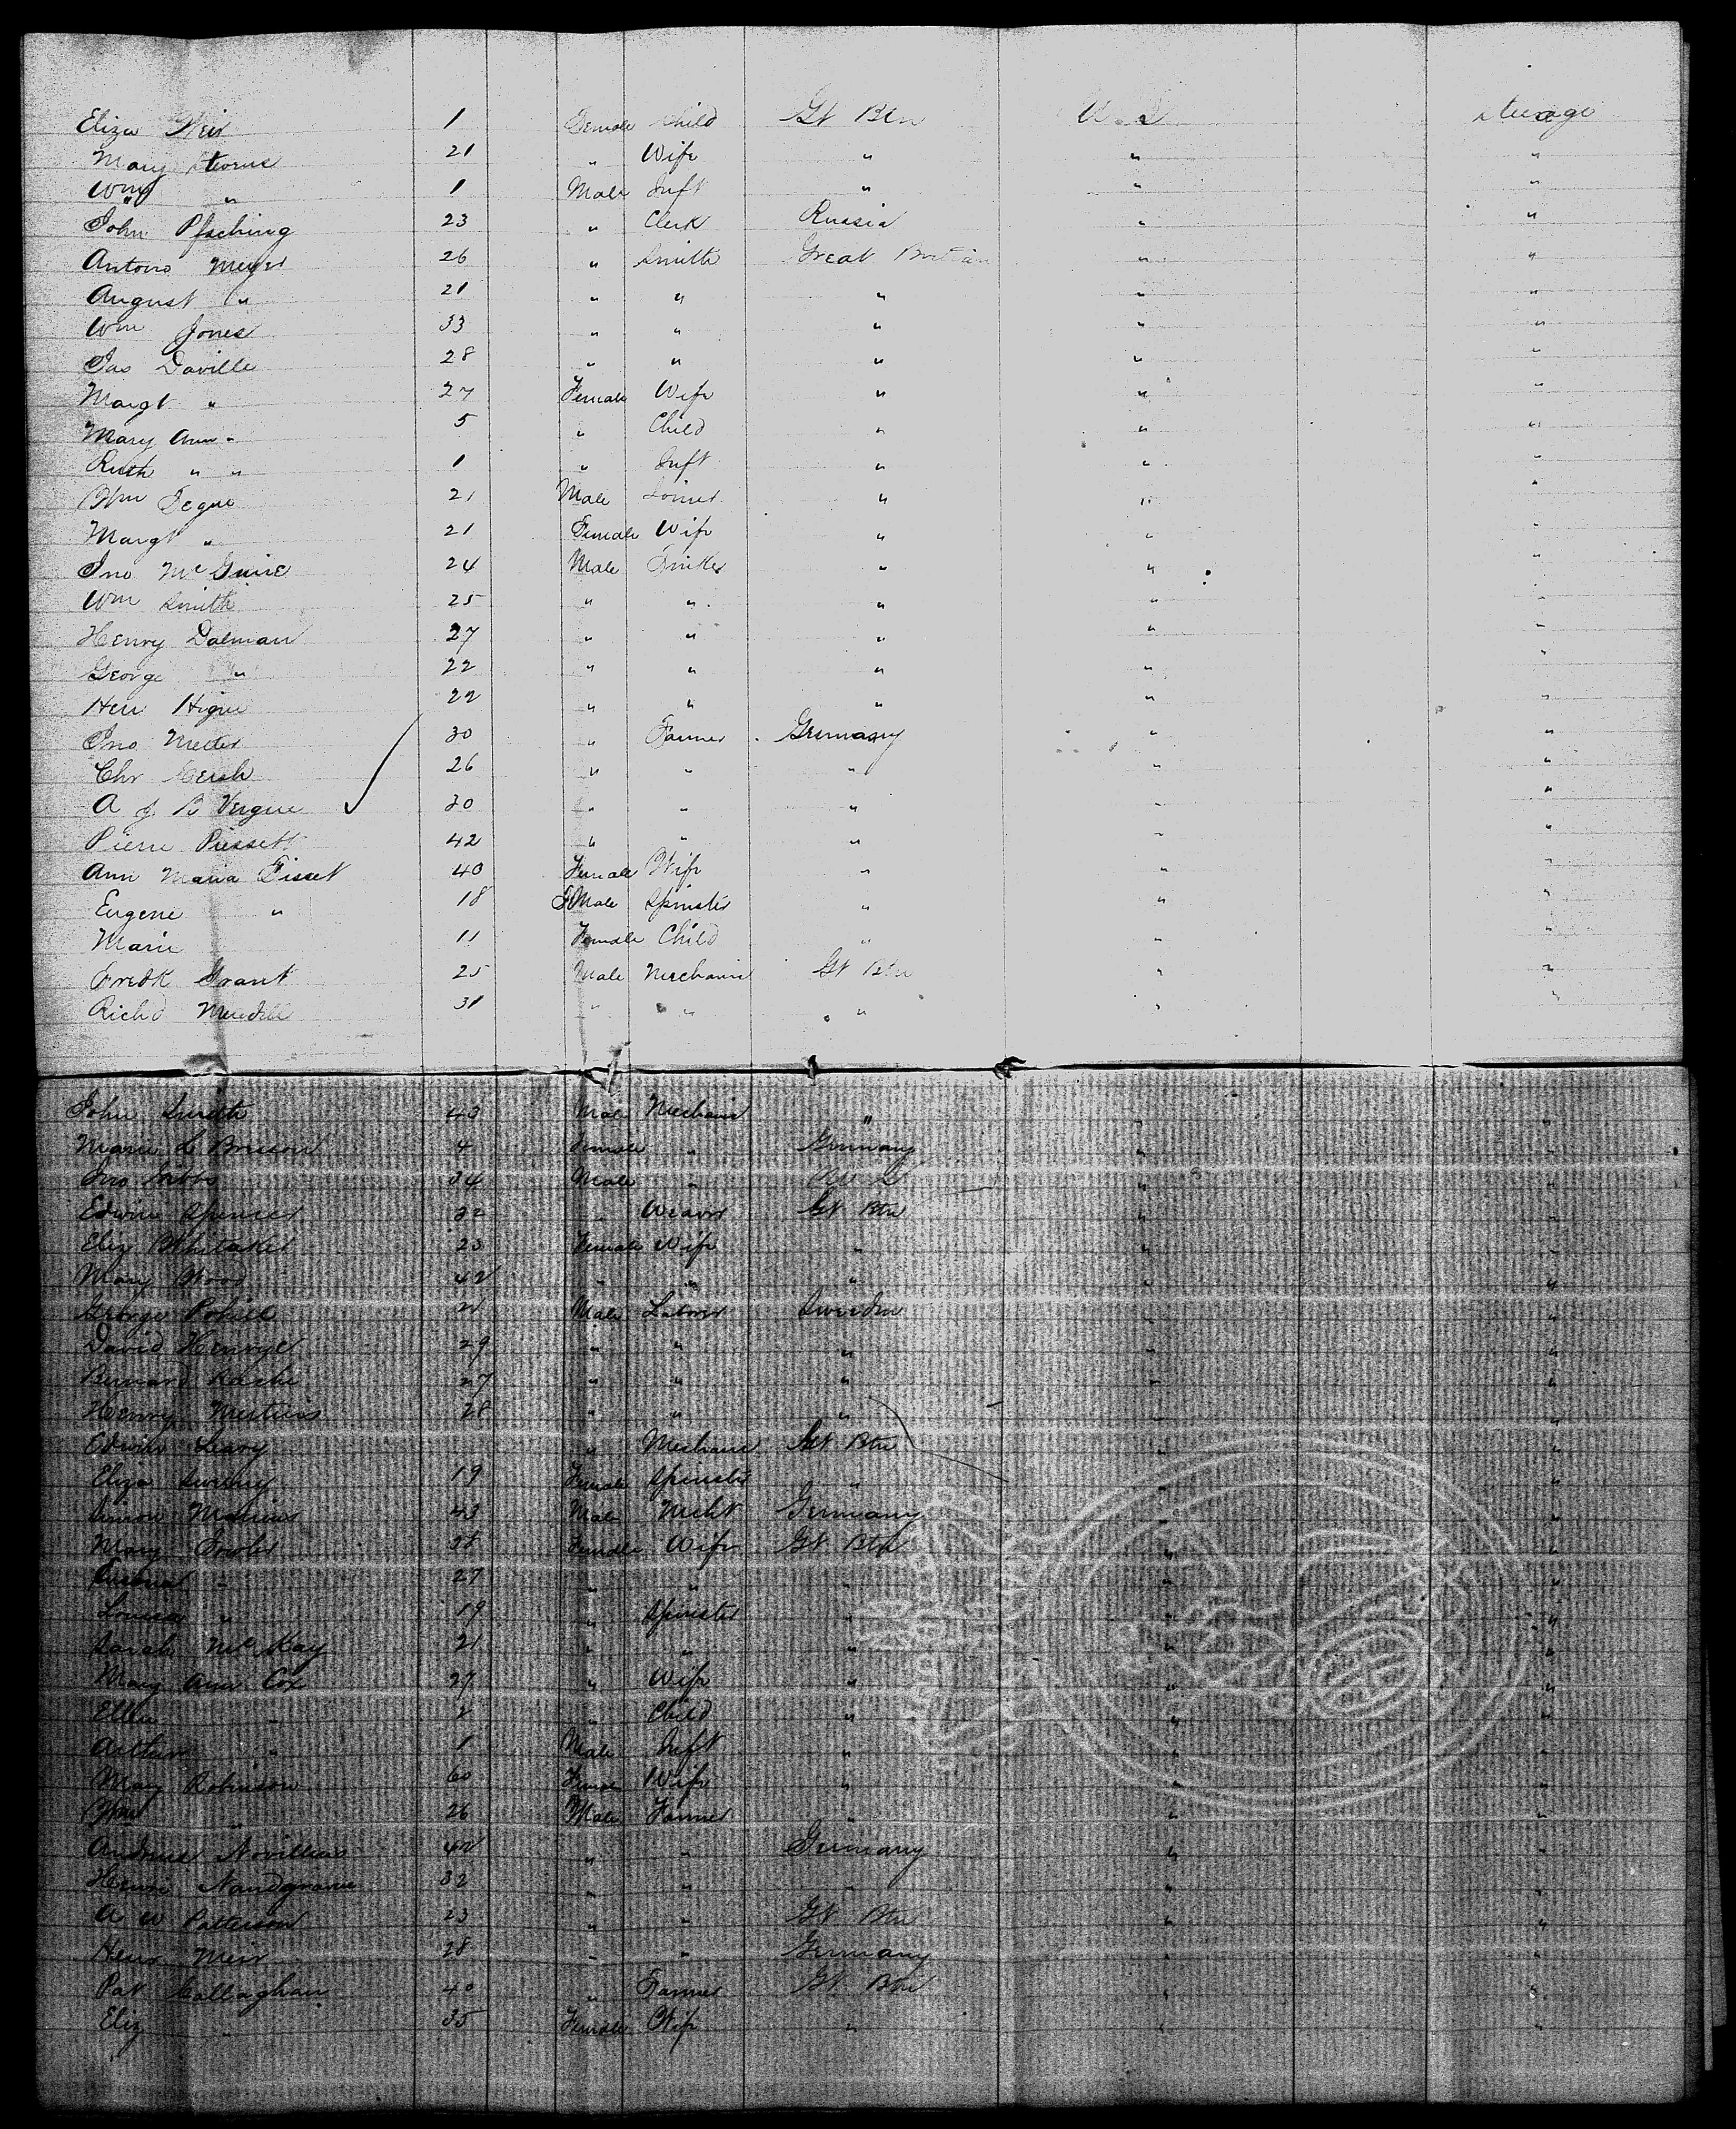 Eliza Weir 1 Female Child Gt Btn U S Steerage
Mary Stevens 21 " Wife " " "
Wm " 1 Male Inft " " "
John Pfsching 23 " Clerk Russia " "
Antono Meyer 26 " Smith Great Britian " "
August " 21 " " " " "
Wm Jones 33 " " " " "
Jas Daville 28 " " " " "
Margt " 27 Female Wife " " "
Mary Ann " 5 " Child " " "
Ruth " " 1 " Inft " " "
Wm Tegue 21 Male Joiner " " "
Margt " 21 Female Wife " " "
Jno McGuire 24 Male " " "
Wm Smith 25 " " " " "
Henry Dalman 27 " " " " "
George " 22 " " " " "
Hen Higne 22 " " " " "
Jno 30 " Farmer Germany " "
Chr 26 " " " " "
A J B Vergne 30 " " " " "
Pierre 42 " " " " "
Ann Maria Tisset 40 Female Wife " " "
Eugene " 18 FMale Spinster " " "
Marie 11 Female Child " " "
Fredk Grant 25 Male Mechanic Gt Btn " "
Richd 31 " " " " "
John Smith 43 Male Mechanic " " "
Marie L 4 Female " Germany " "
Jno 34 Male " U S " "
Edwin Spencer 32 " Weaver Gt Btn " "
Eliz Whitaker 23 Female Wife " " "
Mary Wood 42 " " " " "
George Male Laborer Sweden " "
David 29 " " " " "
Bernard 27 " " " " "
Henry 28 " " " " "
Edwin Leary " Mechanic Gt Btn " "
Eliza Sweeney 19 Female Spinster " " "
Simon 43 Male Mcht Germany " "
Mary Fowler Female Wife Gt Btn " "
" 27 " " " " "
Louisa " 19 " Spinster " " "
Sarah McKay 21 " " " " "
Mary Ann Cox 27 " Wife " " "
Ellen " 2 " Child " " "
Arthur " 1 Male Inft " " "
Mary Robinson 60 Female Wife " " "
Wm " 26 Male Farmer " " "
42 " " Germany " "
Henri 32 " " " " "
A W Patterson 23 " " Gt Btn " "
Henr Meir 28 " " Germany " "
Pat Callaghan 40 " Farmer Gt Btn " "
Eliz " 35 Female Wife " " "